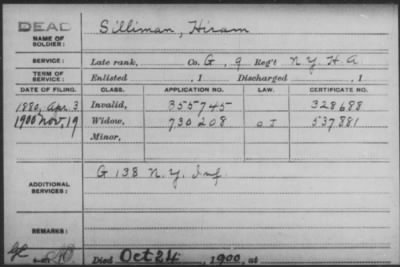 DEAD
NAME OF SOLDIER: Silliman, Hiram
SERVICE: Late rank, Co. G, 9 Reg't N.Y. H.A.
TERM OF SERVICE: Enlisted , 1 Discharged , 1
DATE OF FILING. CLASS. APPLICATION NO. LAW. CERTIFICATE NO.
1880, Apr. 3 Invalid, 355745 328688
1900 Nov, 19 Widow, 730208 537881
Minor,
ADDITIONAL SERVICES: G 138 N.Y. Inf.
REMARKS:
Died Oct 24, 1900, at